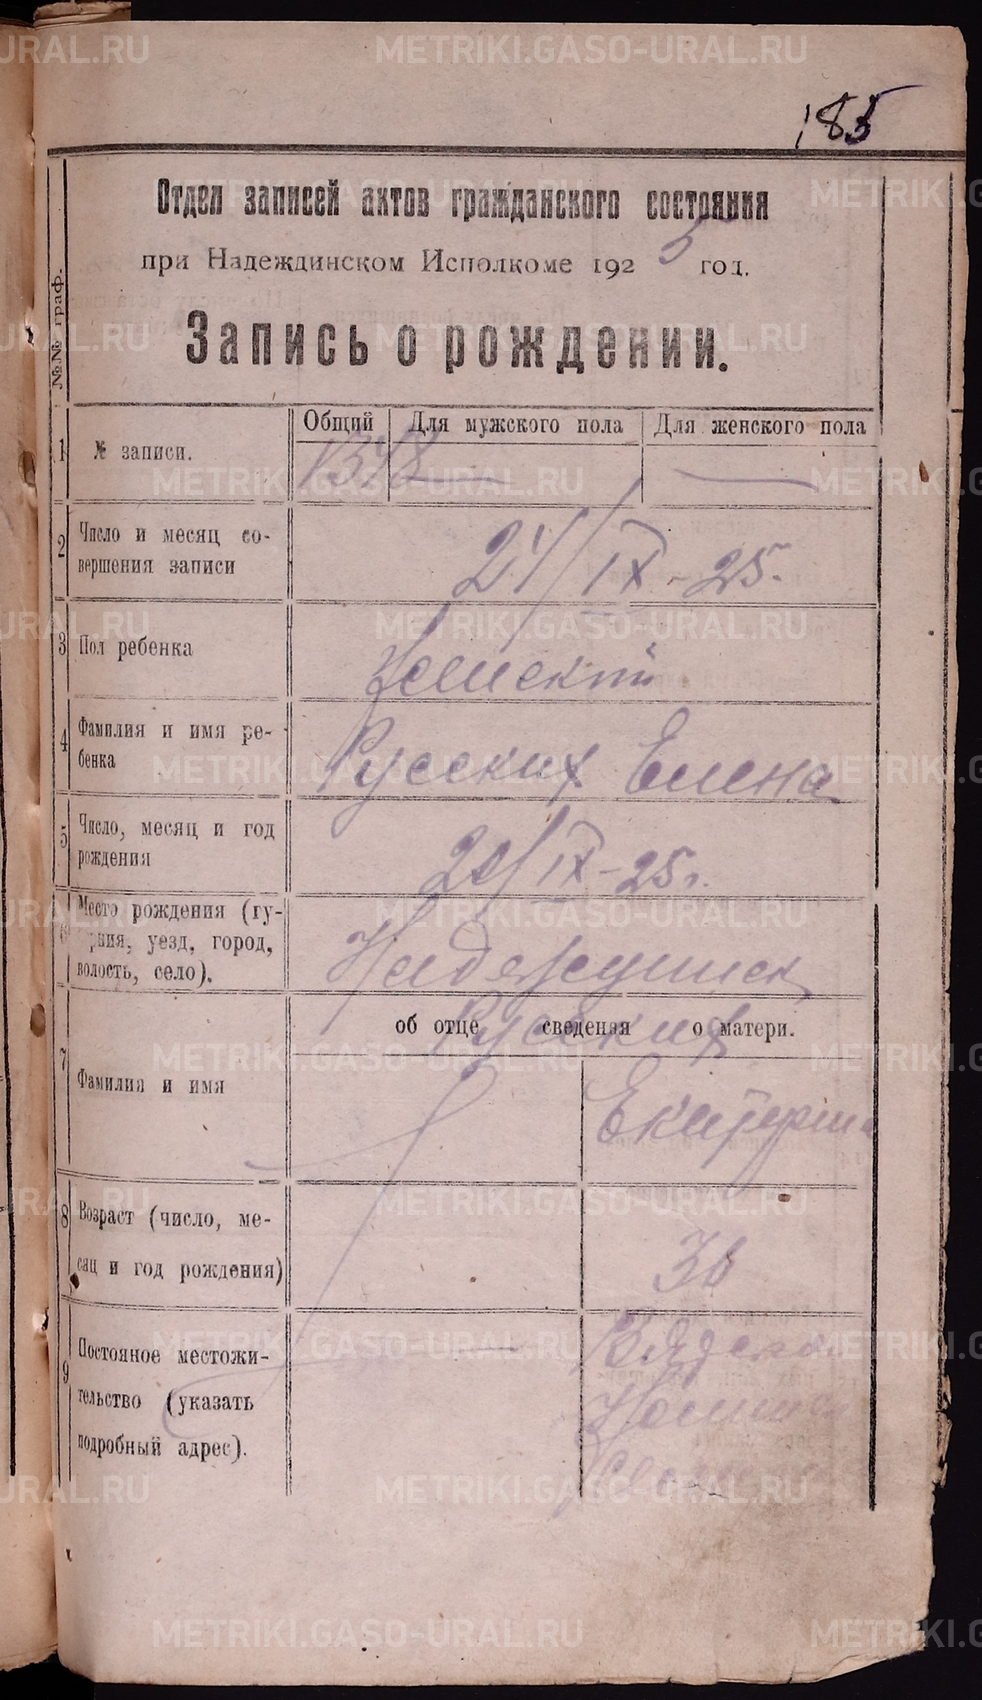 185
Отдел записей актов гражданского состояния
при Надеждинском Исполкоме 1925 год.
Запись о рождении.
№№ граф.
Общий Для мужского пола Для женского пола
1 № записи. 1348 — —
2 Число и месяц со-
вершения записи
24/IX-25.
3 Пол ребенка
Женский
4 Фамилия и имя ре-
бенка
Русских Елена
5 Число, месяц и год
рождения
20/IX-25г.
Место рождения (гу-
рния, уезд, город,
волость, село).
Надеждинск
об отце сведения о матери.
Русских
7 Фамилия и имя
Екатерина
8 Возраст (число, ме-
сяц и год рождения)
30
9 Постояное местожи-
тельство (указать
подробный адрес).
METRIKI.GASO-URAL.RU